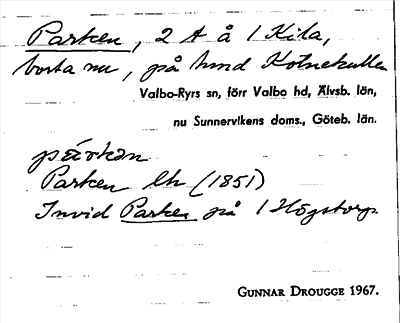 Parken, 2 A å 1 Kila,
borta nu, på hmd Kolnekullen
Valbo-Ryrs sn, förr Valbo hd, Älvsb. län,
nu Sunnervikens doms., Göteb. län.
Parken lh (1851)
Invid Parken på 1 Högstorp
GUNNAR DROUGGE 1967.